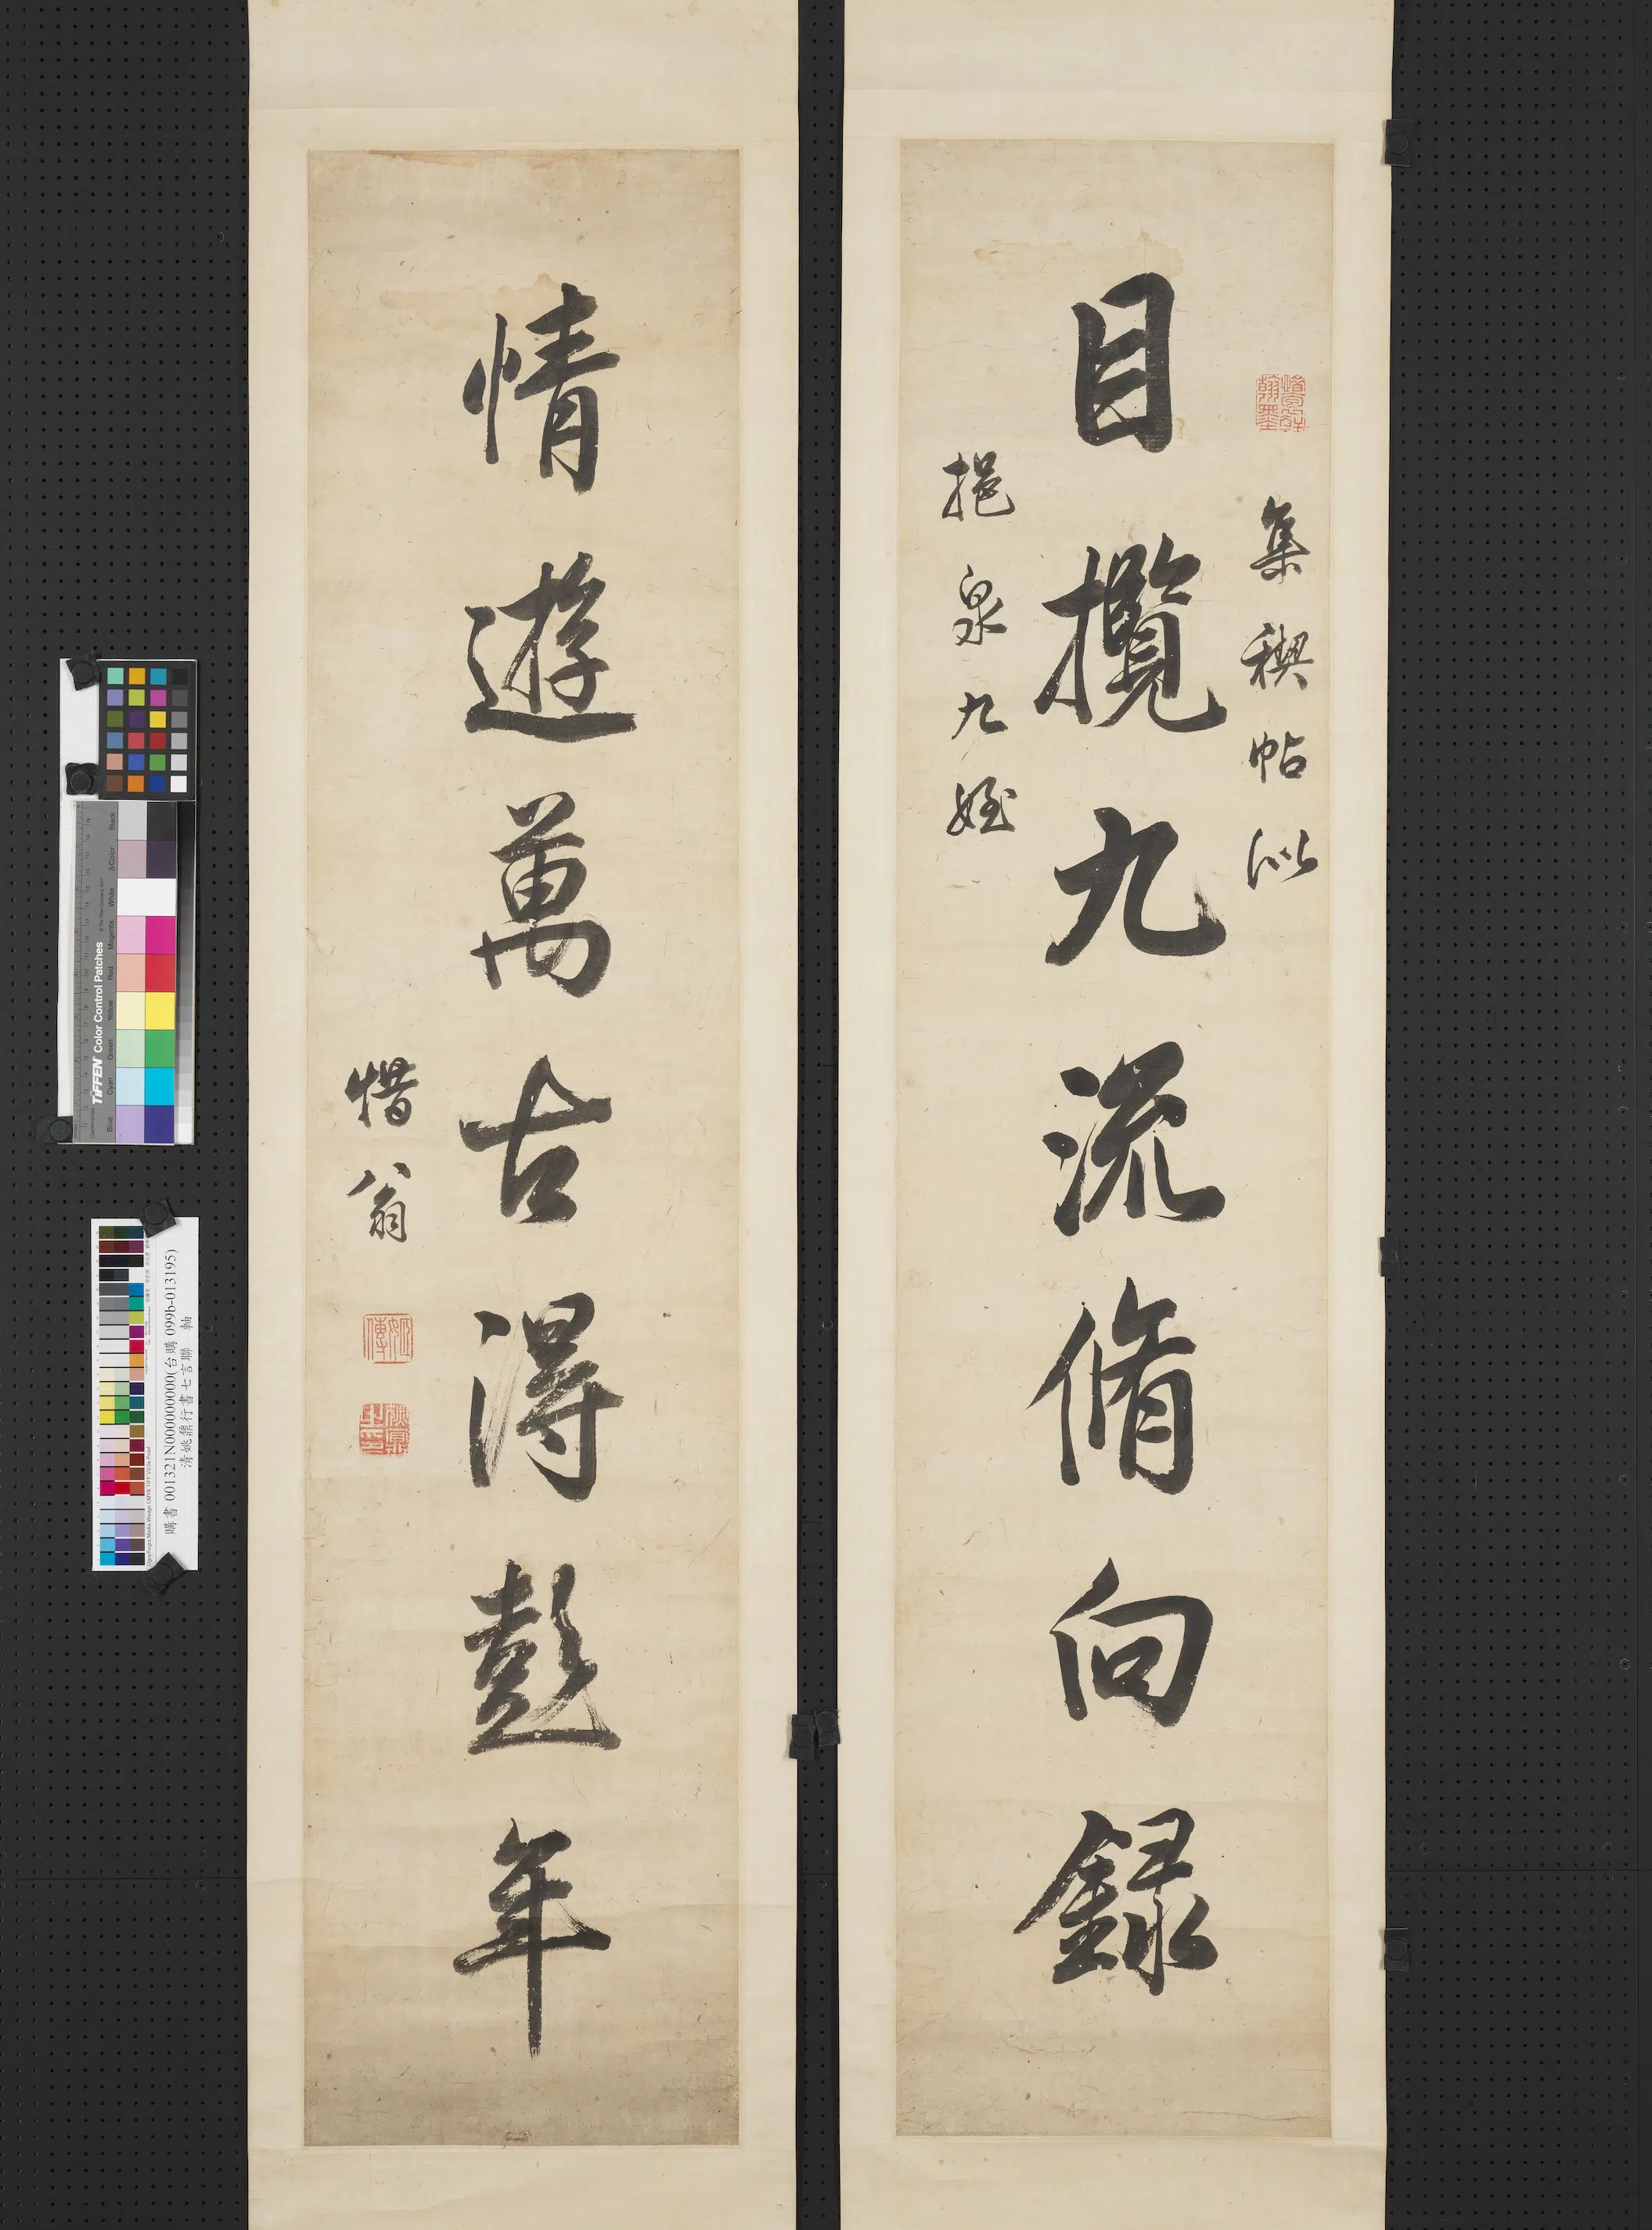 目攬九流脩向錄
集稧帖似
挹泉九姪
情遊萬古得彭年
惜翁
購書 001321N000000000(台購 099b-013195)
清姚鼐行書七言聯 軸
TIFFEN Color Control Patches
Blue Cyan Green Yellow Red Magenta White 3/Color Black